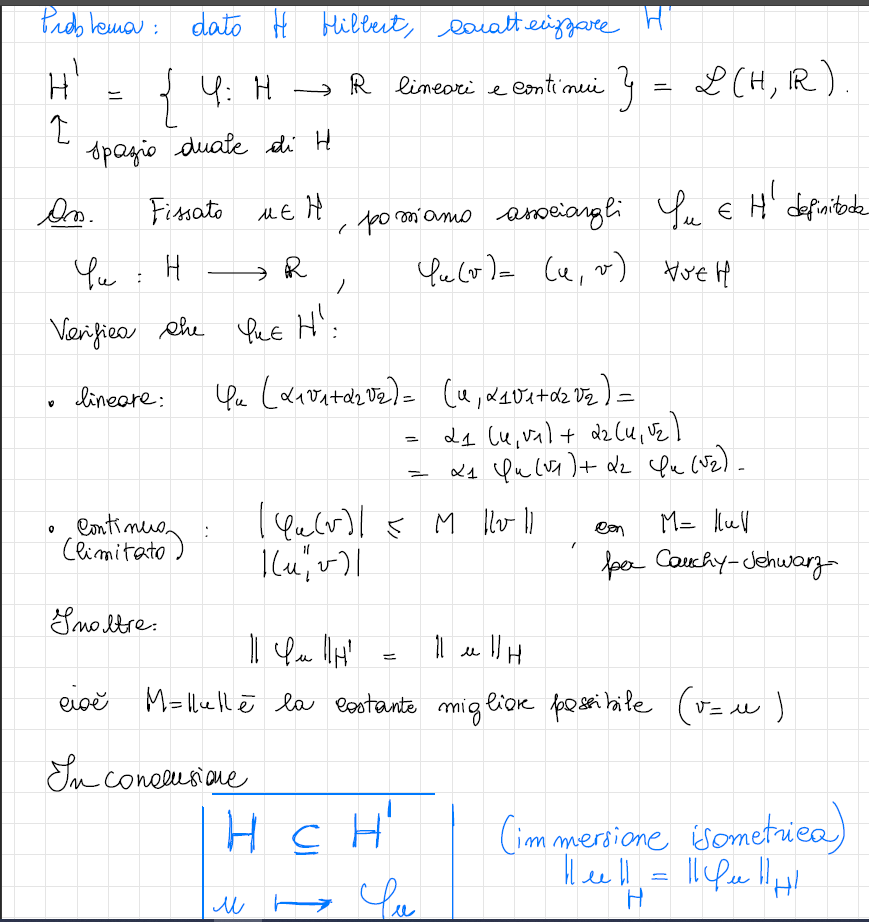 Problema: dato H Hilbert, caratterizzare H'
H' = { φ: H → ℝ lineari e continui } = ℒ(H, ℝ).
↑
spazio duale di H
Oss. Fissato u ∈ H, possiamo associargli φᵤ ∈ H' definito da
φᵤ : H → ℝ, φᵤ(v) = (u, v) ∀v∈H
Verifica che φᵤ∈ H':
• lineare: φᵤ (α1v1+α2v2) = (u, α1v1+α2v2) =
= α1 (u,v1) + α2(u,v2)
= α1 φᵤ(v1) + α2 φᵤ(v2).
• continuo : |φᵤ(v)| ≤ M ||v||, con M= ||u||
(limitato) " per Cauchy-Schwarz
|(u, v)|
Inoltre:
|| φᵤ ||H' = || u ||H
cioè M=||u|| è la costante migliore possibile (v=u)
In conclusione
H ⊆ H' (immersione isometrica)
u ↦ φᵤ ||u||H = ||φᵤ||H'